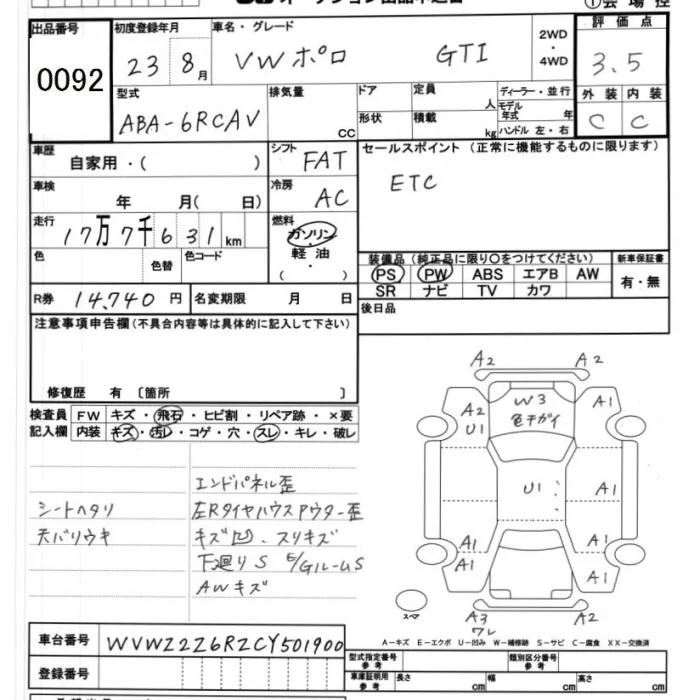 出品番号
0092
初度登録年月
23 8月
車名・グレード
VWポロ GTI
2WD
・
4WD
評価点
3.5
外装 内装
C C
型式
ABA-6RCAV
排気量
CC
ドア
形状
定員
人
積載
kg
ディーラー・並行
モデル年式 年
ハンドル 左・右
車歴
自家用・( )
シフト
FAT
セールスポイント (正常に機能するものに限ります)
ETC
車検
年 月( 日)
冷房
AC
走行
17万7千631km
燃料
ガソリン
・
軽油
・
( )
色
色替
色コード
装備品(純正品に限り〇をつけてください)
PS PW ABS エアB AW
SR ナビ TV カワ
新車保証書
有・無
R券 14,740円
名変期限 月 日
後日品
注意事項申告欄(不具合内容等は具体的に記入して下さい)
修復歴 有 〔箇所 〕
検査員
記入欄
FW キズ・飛石・ヒビ割・リペア跡・×要
内装 キズ・汚レ・コゲ・穴・スレ・キレ・破レ
シートヘタリ
天バリウキ
エンドパネル歪
左Rタイヤハウスアウター歪
キズ凹、スリキズ
下廻りS
AWキズ
A2 A2
W3
色チガイ
A2
U1
A1
U1
A1
A1
A1
A1
A1
A3
ワレ
A2
スペア
A-キズ E-エクボ U-凹み W-補修跡 S-サビ C-腐食 XX-交換済
車台番号
WVWZZZ6RZCY501900
登録番号
型式指定番号
参考
類別区分番号
参考
車庫証明用
参考
長さ cm
幅 cm
高さ cm